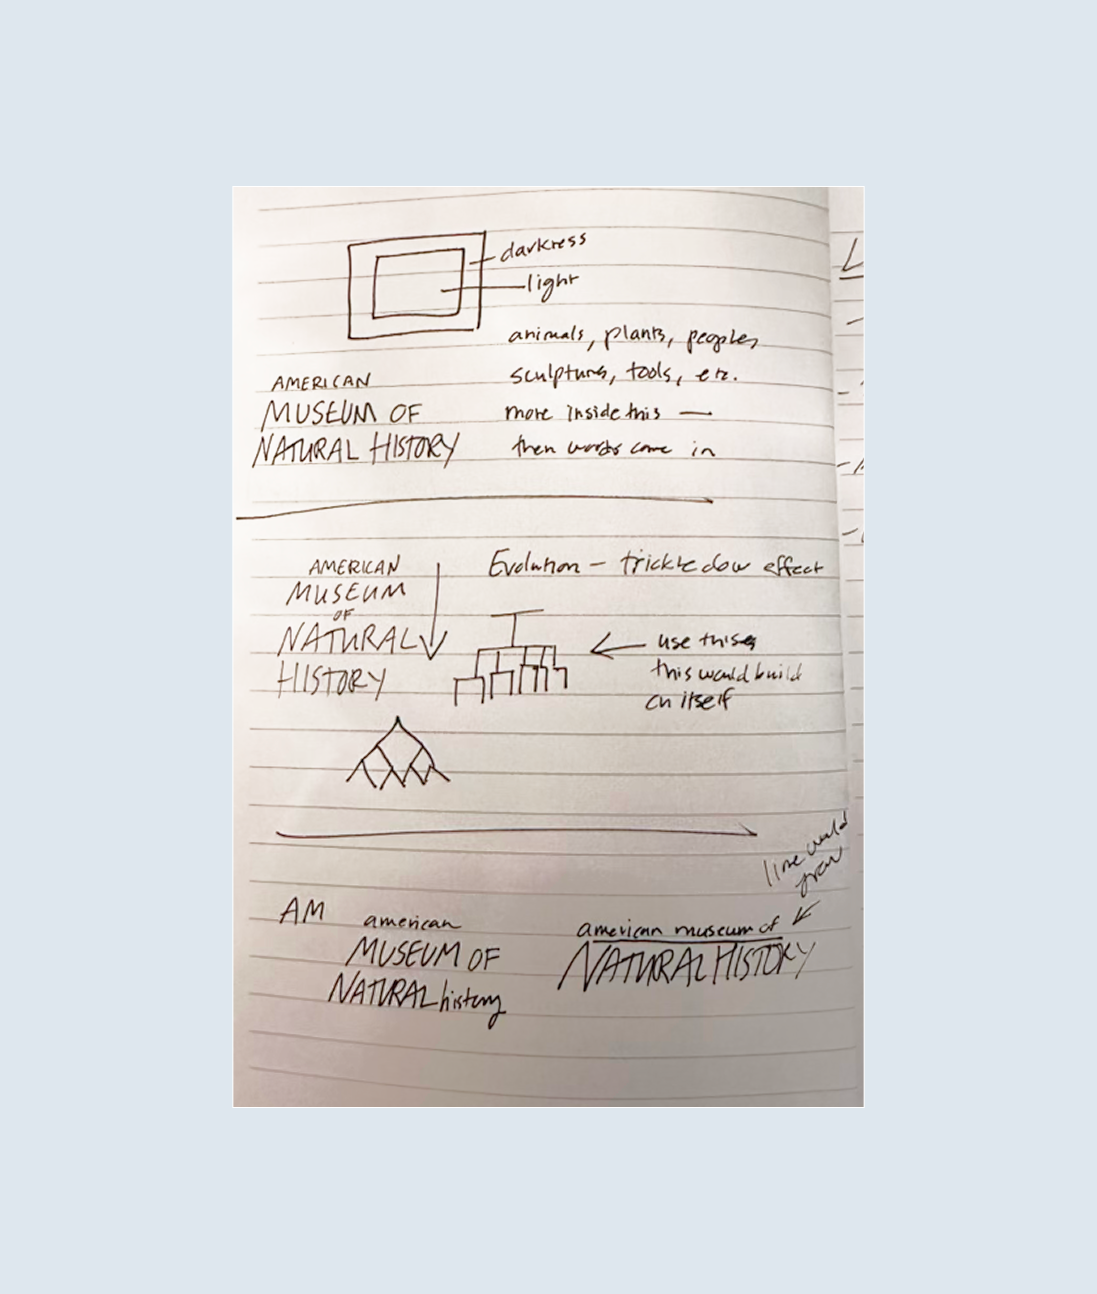 darkness
light
animals, plants, peoples,
sculptures, tools, etc.
more inside this —
then words come in
AMERICAN
MUSEUM OF
NATURAL HISTORY
AMERICAN
MUSEUM
OF
NATURAL
HISTORY
Evolution – trickle dow effect
use this
this would build
on itself
line would
AM
american
MUSEUM OF
NATURAL history
american museum of
NATURAL HISTORY